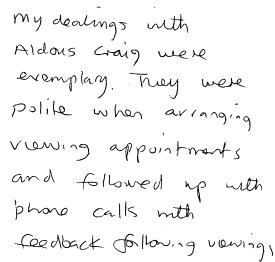 My dealings with
Aldous Craig were
exemplary. They were
polite when arranging
viewing appointments
and followed up with
phone calls with
feedback following viewings